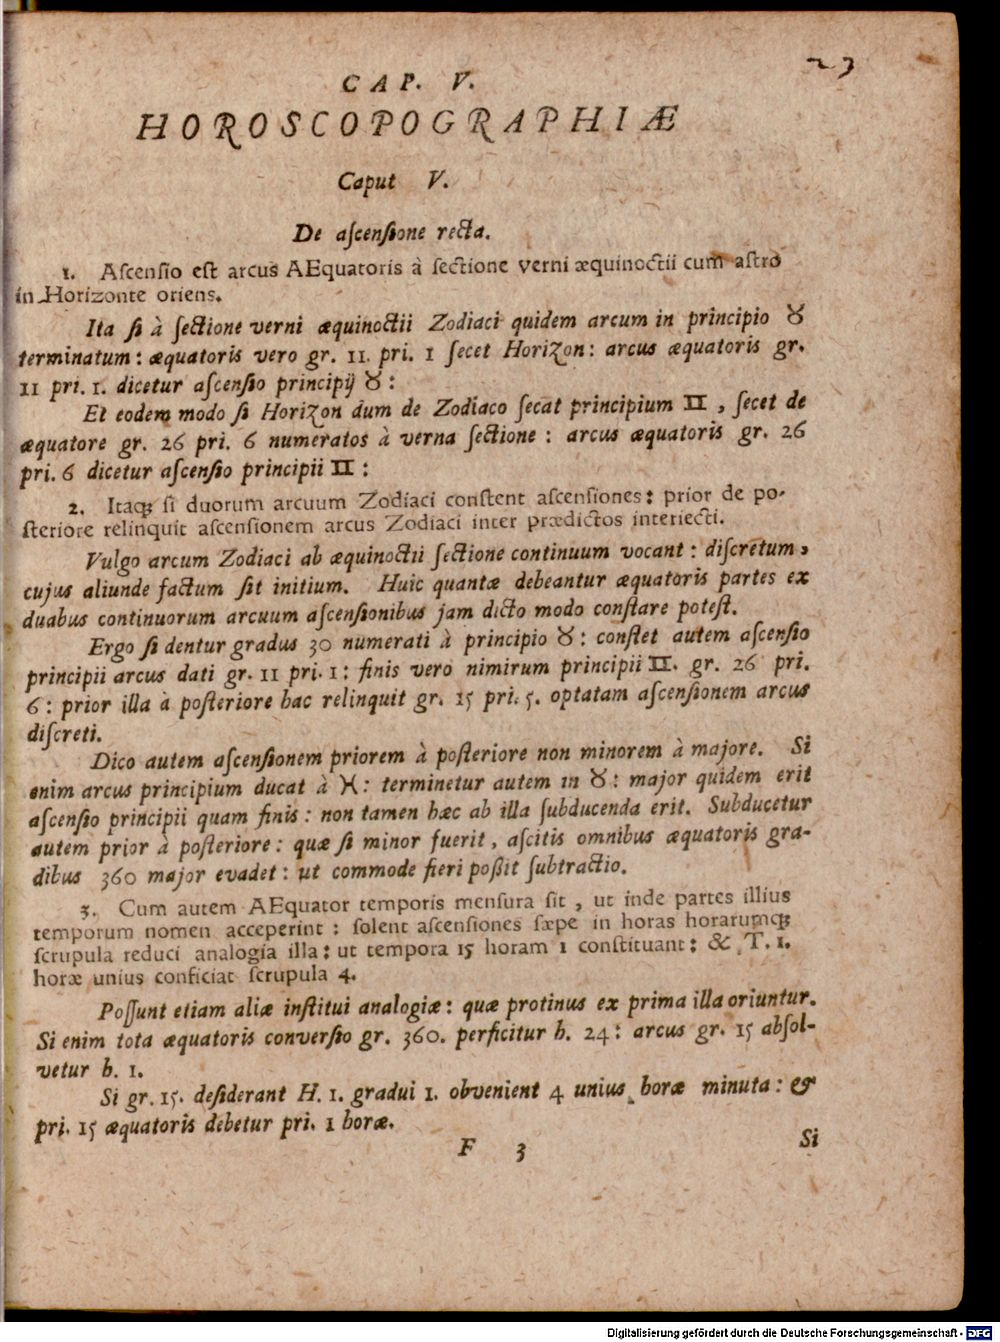 23
CAP. V.
HOROSCOPOGRAPHIÆ
Caput V.
De aſcenſione recta.
1. Aſcenſio est arcus AEquatoris à ſectione verni æquinoctii cum astro
in Horizonte oriens.
Ita ſi à ſectione verni æquinoctii Zodiaci quidem arcum in principio ♉
terminatum: æquatoris vero gr. 11. pri. 1 ſecet Horizon: arcus æquatoris gr.
11 pri. 1. dicetur aſcenſio principij ♉:
Et eodem modo ſi Horizon dum de Zodiaco ſecat principium ♊, ſecet de
æquatore gr. 26 pri. 6 numeratos à verna ſectione: arcus æquatoris gr. 26
pri. 6 dicetur aſcenſio principii ♊:
2. Itaqꝫ ſi duorum arcuum Zodiaci conſtent aſcenſiones: prior de po-
ſteriore relinquit aſcenſionem arcus Zodiaci inter prædictos interiecti.
Vulgo arcum Zodiaci ab æquinoctii ſectione continuum vocant: diſcretum,
cujus aliunde factum ſit initium. Huic quantæ debeantur æquatoris partes ex
duabus continuorum arcuum aſcenſionibus jam dicto modo conſtare poteſt.
Ergo ſi dentur gradus 30 numerati à principio ♉: conſtet autem aſcenſio
principii arcus dati gr. 11 pri. 1: finis vero nimirum principii ♊. gr. 26 pri.
6: prior illa à poſteriore hac relinquit gr. 15 pri. 5. optatam aſcenſionem arcus
diſcreti.
Dico autem aſcenſionem priorem à poſteriore non minorem à majore. Si
enim arcus principium ducat à ♓: terminetur autem in ♉: major quidem erit
aſcenſio principii quam finis: non tamen hæc ab illa ſubducenda erit. Subducetur
autem prior à poſteriore: quæ ſi minor fuerit, aſcitis omnibus æquatoris gra-
dibus 360 major evadet: ut commode fieri poßit ſubtractio.
3. Cum autem AEquator temporis menſura ſit, ut inde partes illius
temporum nomen acceperint: ſolent aſcenſiones ſæpe in horas horarumqꝫ
ſcrupula reduci analogia illa: ut tempora 15 horam 1 conſtituant: & T. 1.
horæ unius conficiat ſcrupula 4.
Poſſunt etiam aliæ inſtitui analogiæ: quæ protinus ex prima illa oriuntur.
Si enim tota æquatoris converſio gr. 360. perficitur h. 24: arcus gr. 15 abſol-
vetur h. 1.
Si gr. 15. deſiderant H. 1. gradui 1. obvenient 4 unius horæ minuta: &
pri. 15 æquatoris debetur pri. 1 horæ.
F 3
Si
Digitalisierung gefördert durch die Deutsche Forschungsgemeinschaft - DFG